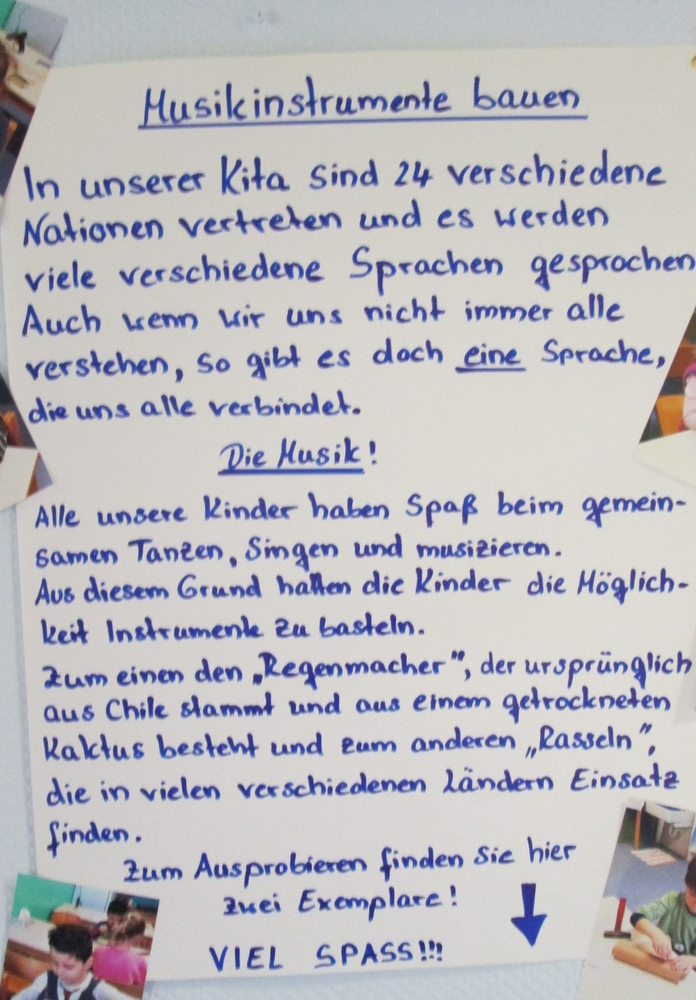 Musikinstrumente bauen
In unserer Kita sind 24 verschiedene
Nationen vertreten und es werden
viele verschiedene Sprachen gesprochen
Auch wenn wir uns nicht immer alle
verstehen, so gibt es doch eine Sprache,
die uns alle verbindet.
Die Musik!
Alle unsere Kinder haben Spaß beim gemein-
samen Tanzen, Singen und musizieren.
Aus diesem Grund hatten die Kinder die Möglich-
keit Instrumente zu basteln.
Zum einen den „Regenmacher", der ursprünglich
aus Chile stammt und aus einem getrockneten
Kaktus besteht und zum anderen „Rasseln",
die in vielen verschiedenen Ländern Einsatz
finden.
Zum Ausprobieren finden Sie hier
zwei Exemplare!
VIEL SPASS!!!